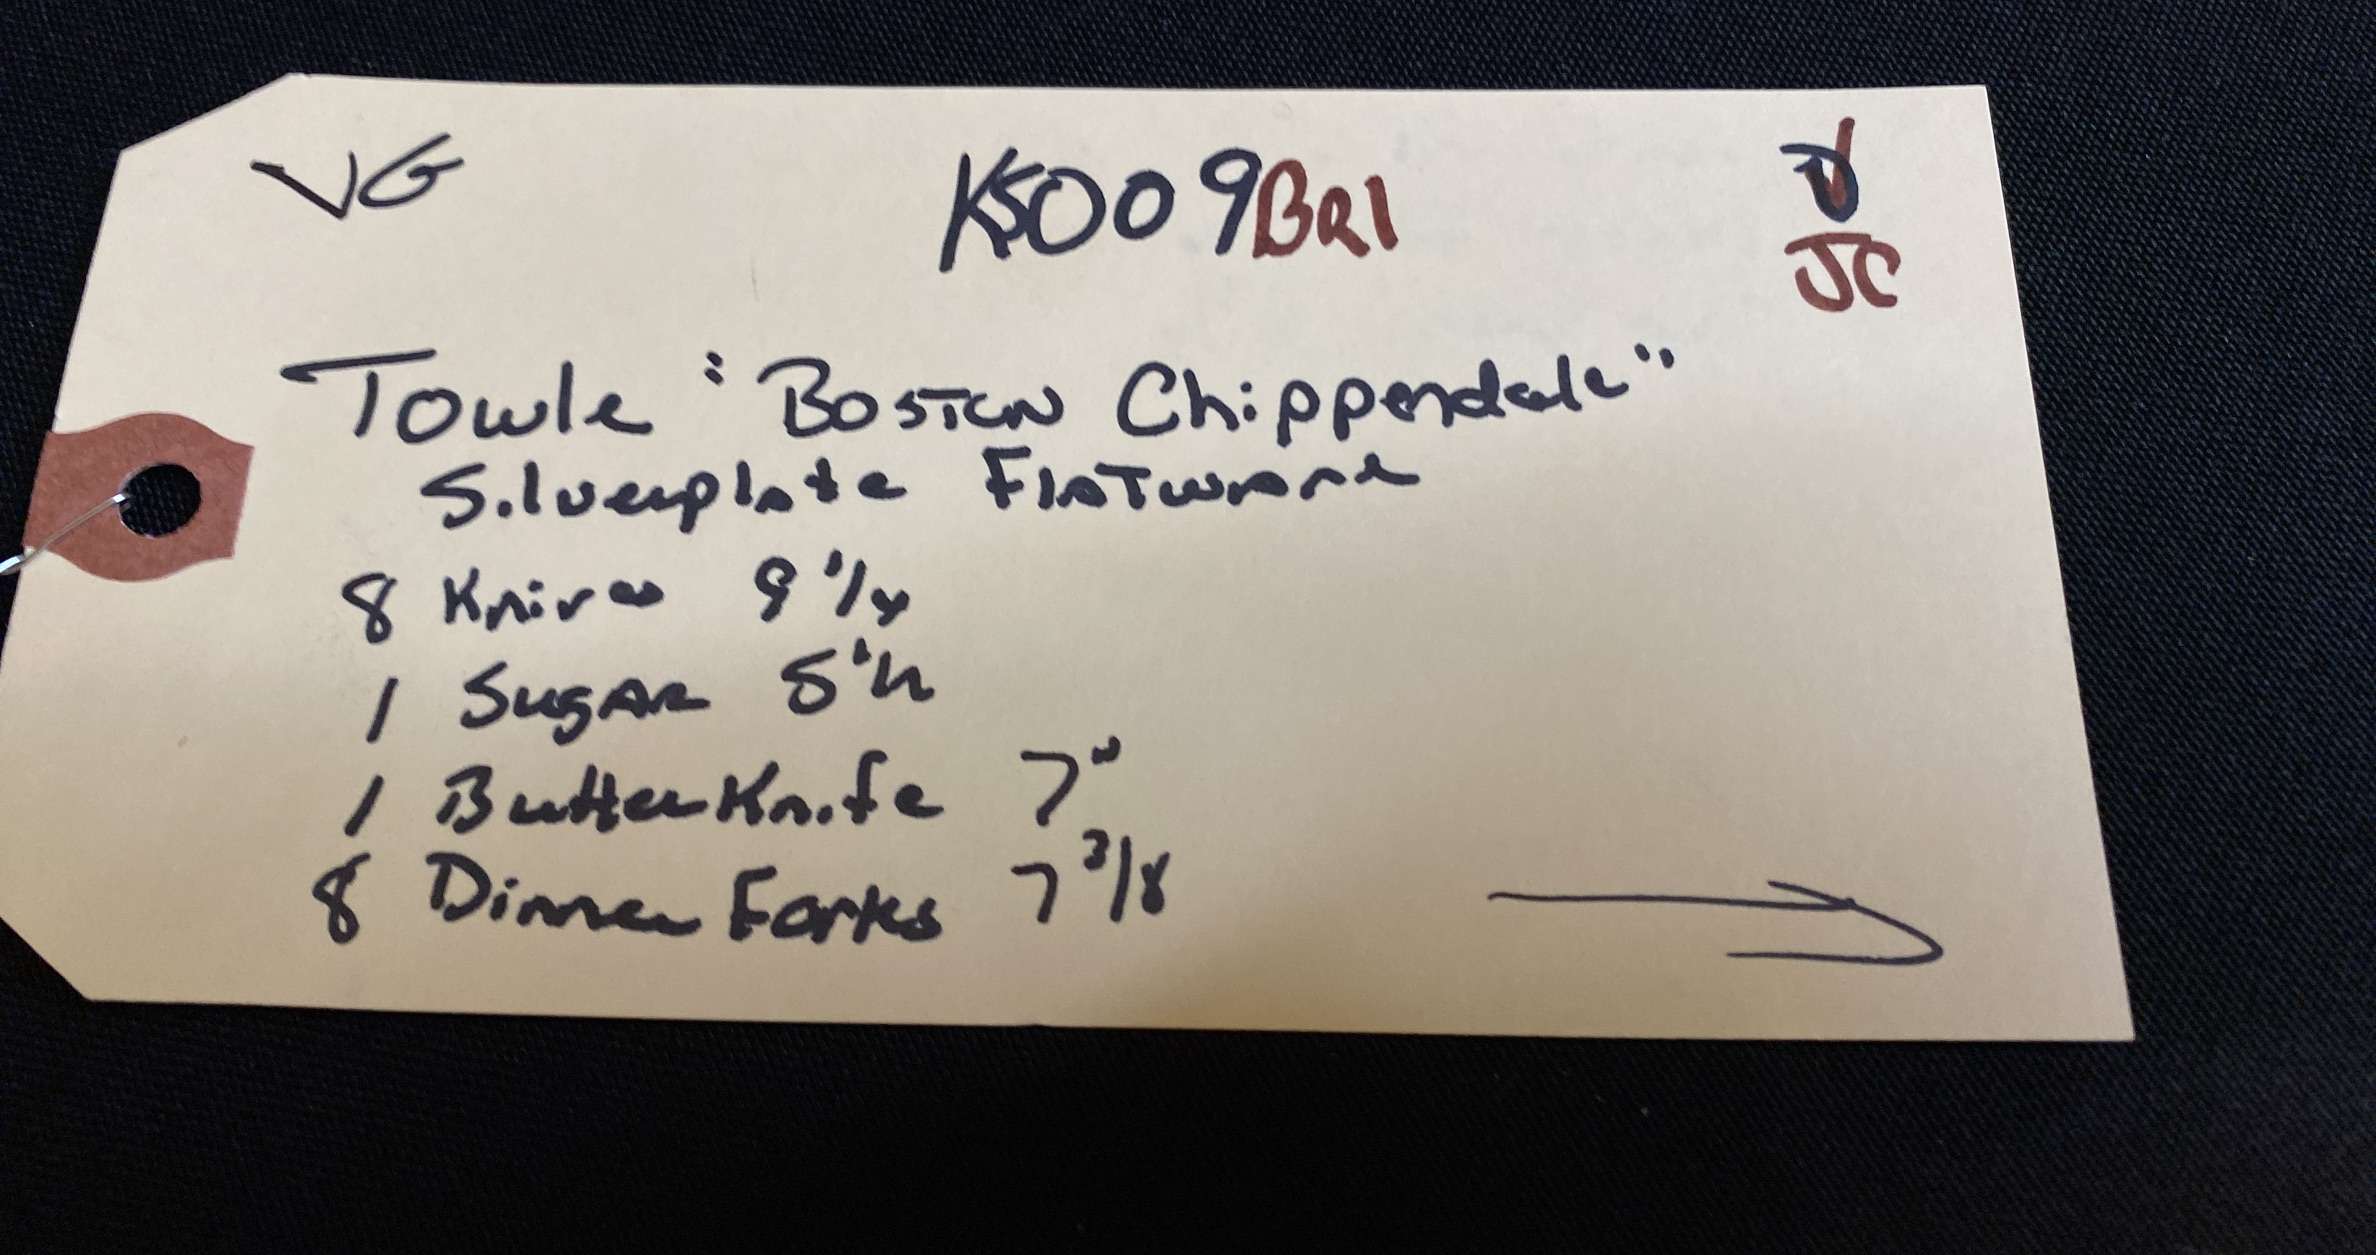 VG K5009BR1
JC
Towle "Boston Chippendale"
Silverplate Flatware
8 Knives 9 1/4
1 Sugar
1 Butter Knife 7"
8 Dinner Forks 7 3/8